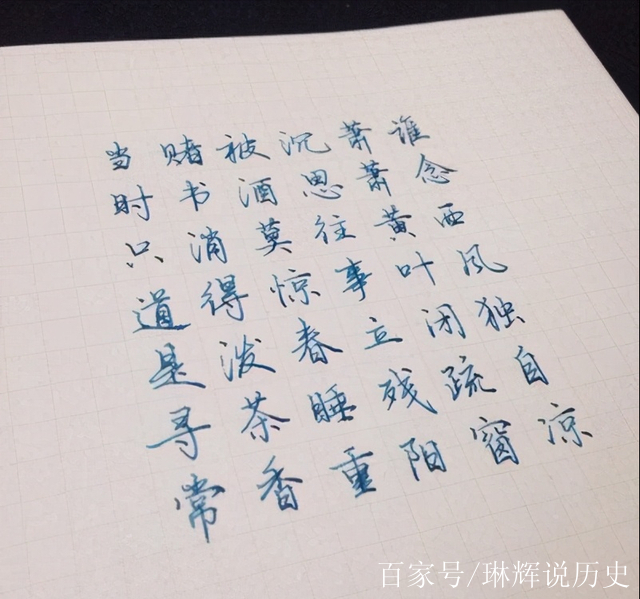 谁念西风独自凉
萧萧黄叶闭疏窗
沉思往事立残阳
被酒莫惊春睡重
赌书消得泼茶香
当时只道是寻常
百家号/琳辉说历史